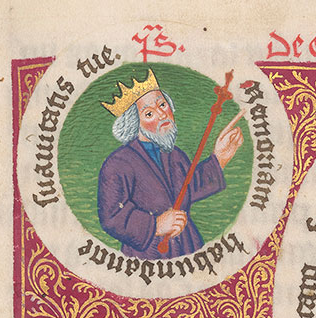 ps. De
memoriam habundancie suauitatis tue.